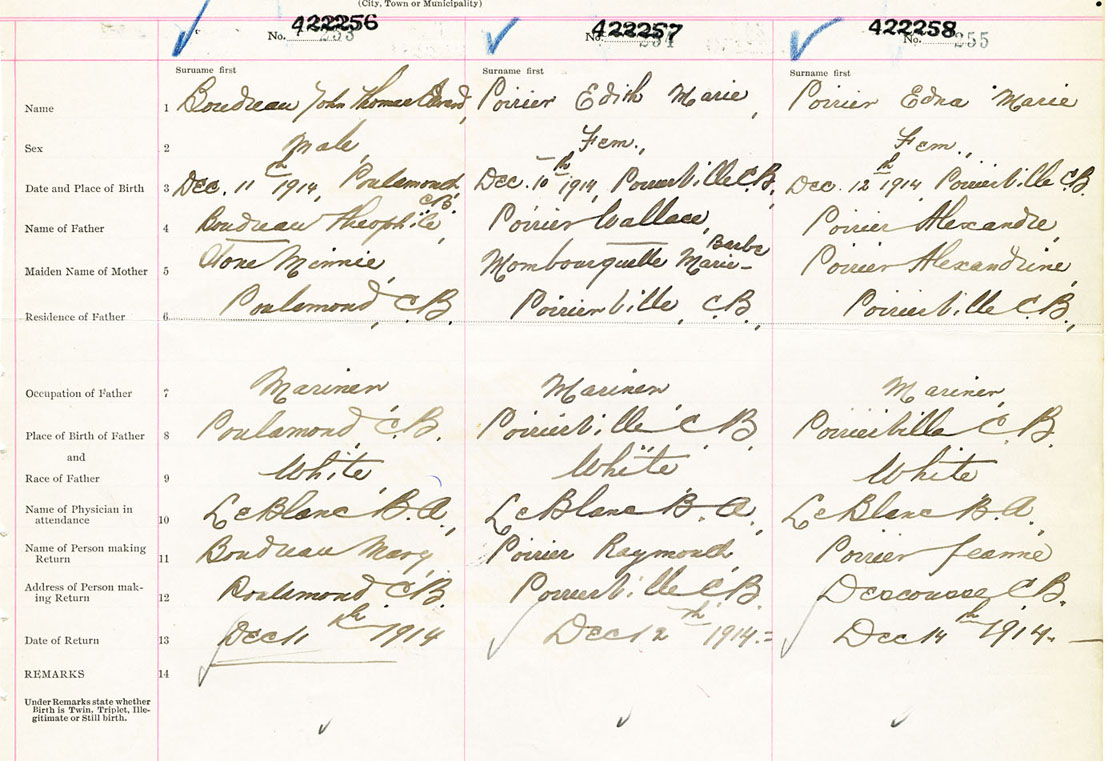 (City, Town or Municipality)
No. 422256 253 No. 422257 254 No. 422258 255
Surname first Surname first Surname first
Name 1 Boudreau John Thomas Poirier Edith Marie, Poirier Edna Marie
Sex 2 Male, Fem., Fem.,
Date and Place of Birth 3 Dec. 11th 1914, Poulamond C.B. Dec. 10th 1914, Poirierville C.B., Dec. 12th 1914 Poirierville C.B.
Name of Father 4 Boudreau Theophile, Poirier Wallace, Poirier Alexandre,
Maiden Name of Mother 5 Minnie, Mombourquette Marie Barbe Poirier Alexandrine
Residence of Father 6 Poulamond, C.B. Poirierville, C.B., Poirierville C.B.,
Occupation of Father 7 Mariner, Mariner, Mariner,
Place of Birth of Father 8 Poulamond, C.B. Poirierville C.B. Poirierville C.B.
and
Race of Father 9 White, White White
Name of Physician in
attendance 10 LeBlanc B.A., LeBlanc B.A., LeBlanc B.A.,
Name of Person making
Return 11 Boudreau Mary, Poirier Raymond Poirier Jeanne
Address of Person mak-
ing Return 12 Poulamond C.B. Poirierville C.B. Descousse C.B.
Date of Return 13 Dec 11th 1914 Dec 12th 1914.= Dec 14th 1914.—
REMARKS 14
Under Remarks state whether
Birth is Twin, Triplet, Ille-
gitimate or Still birth.